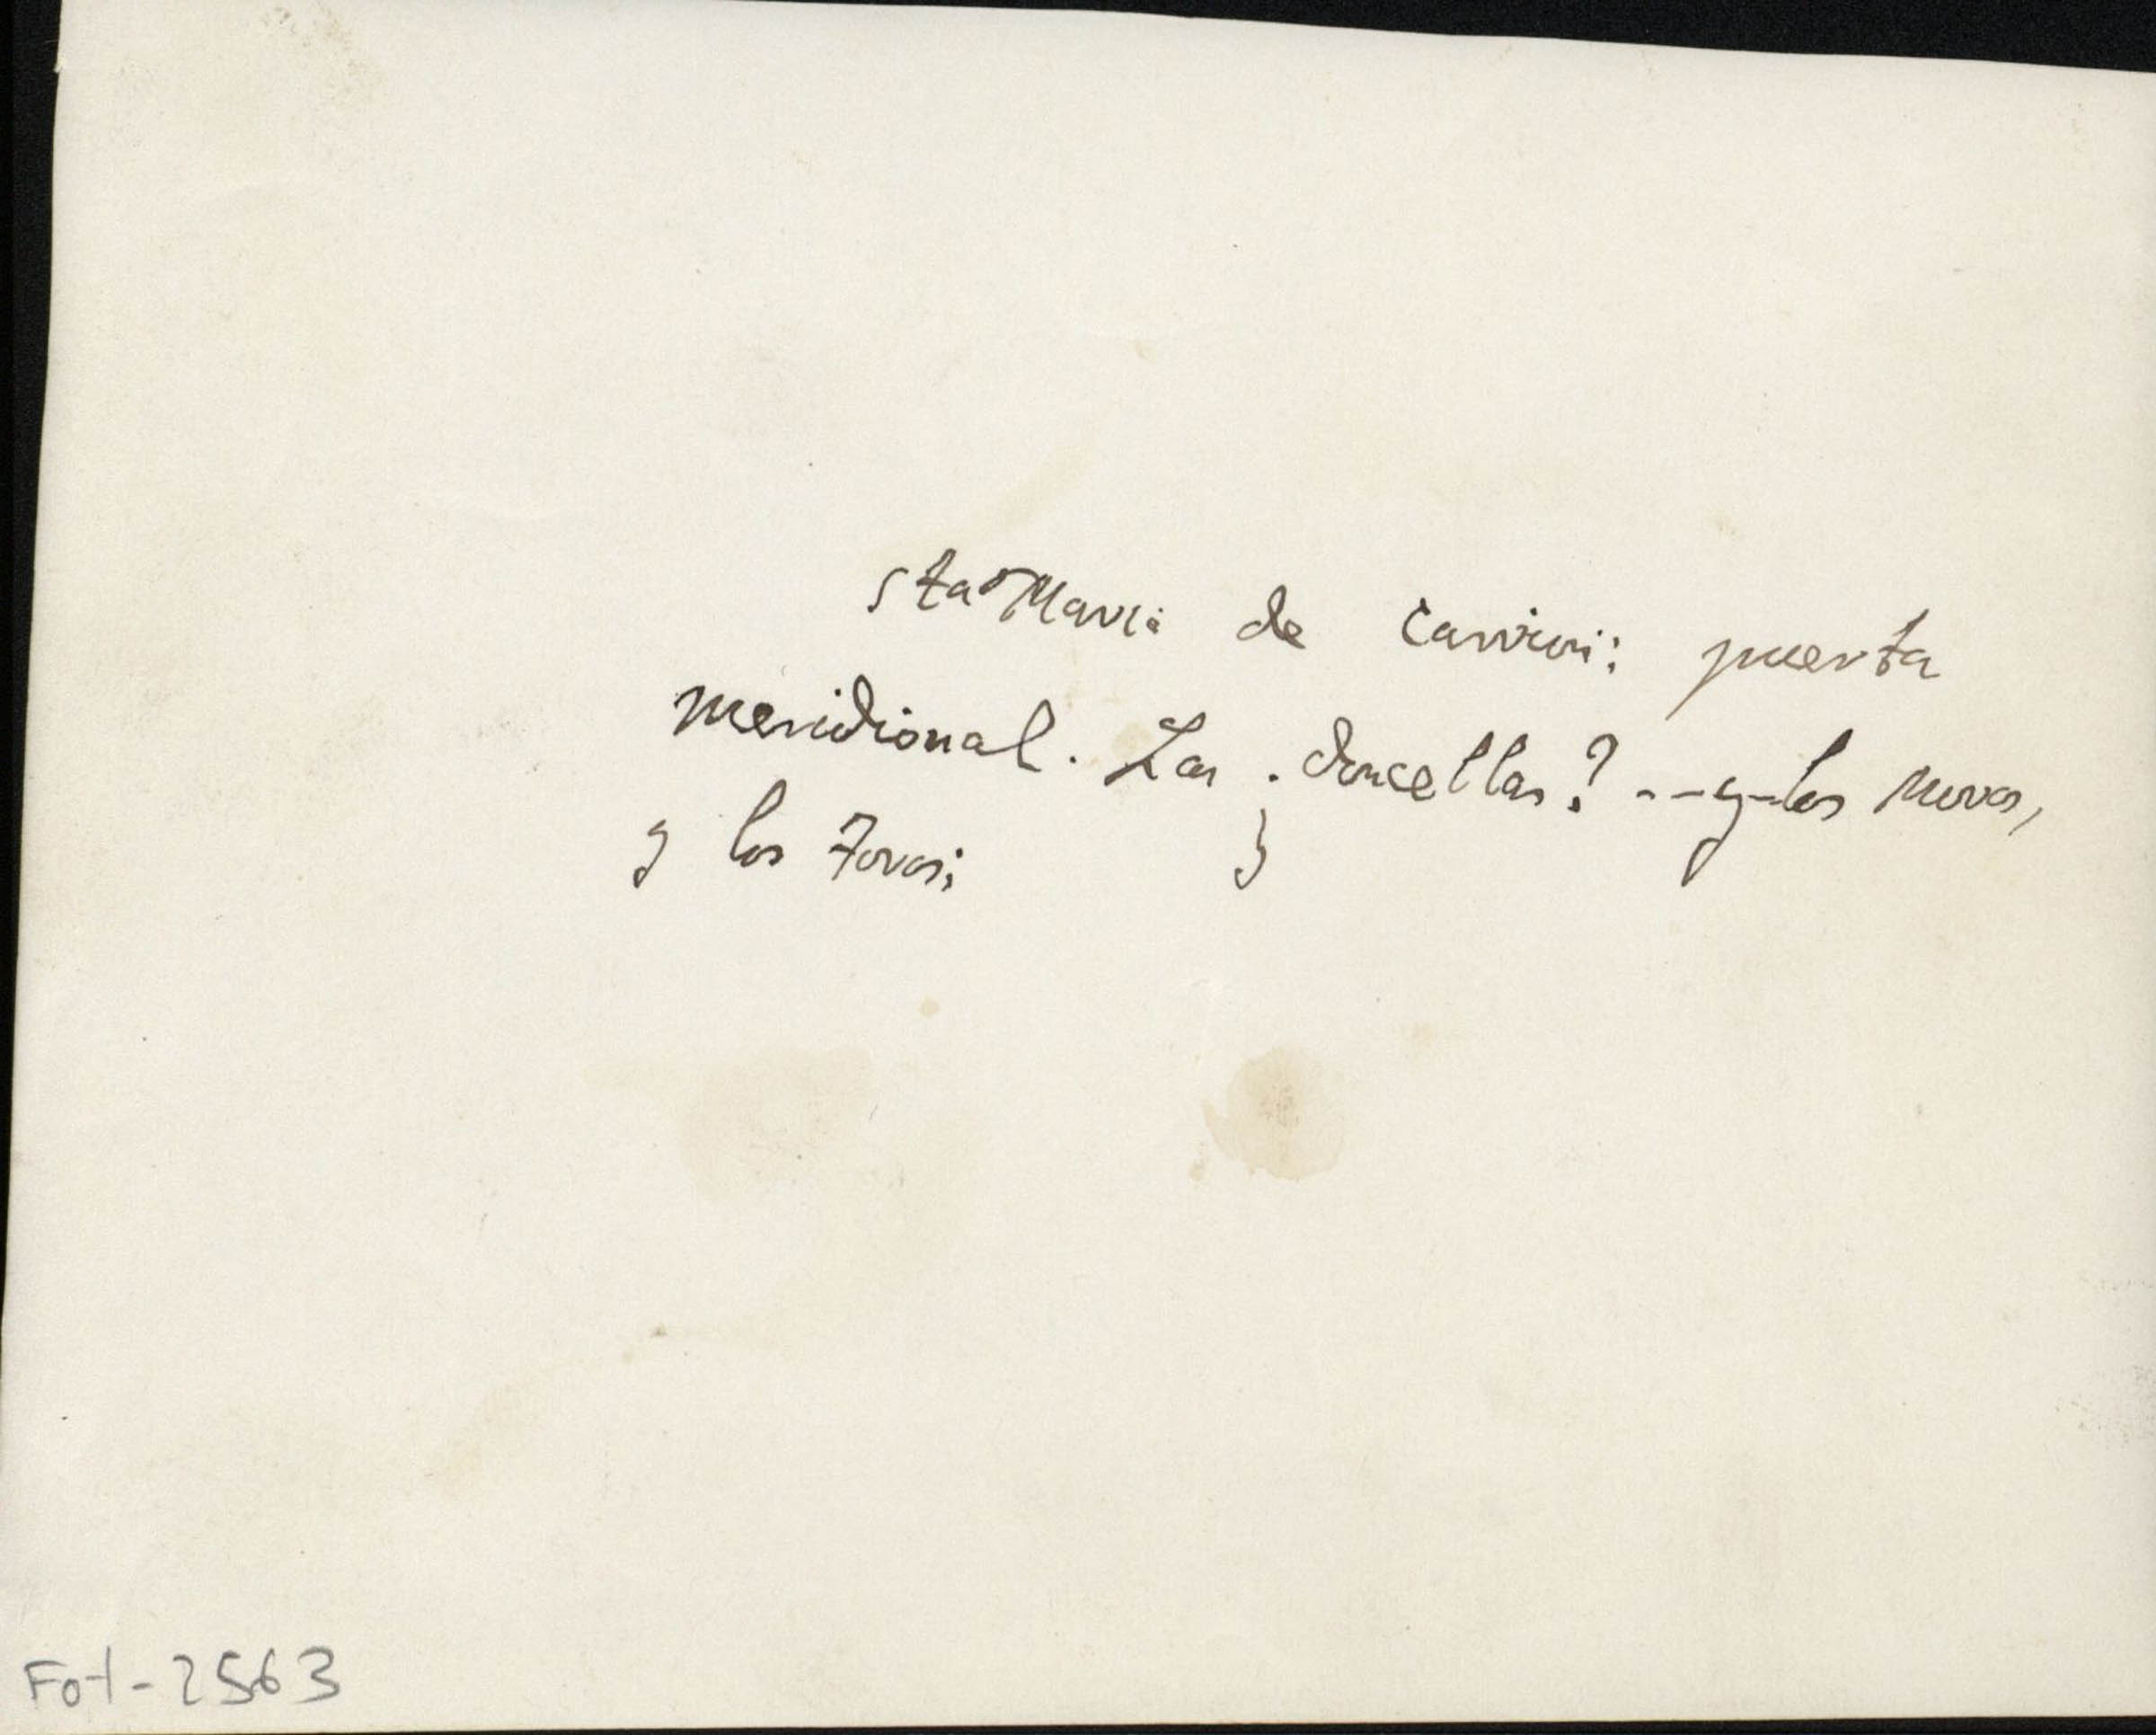 Sta Maria de Carrión: puerta
meridional. Las ¿doncellas? --y-los Moros,
y los Toros;
Fot-2563